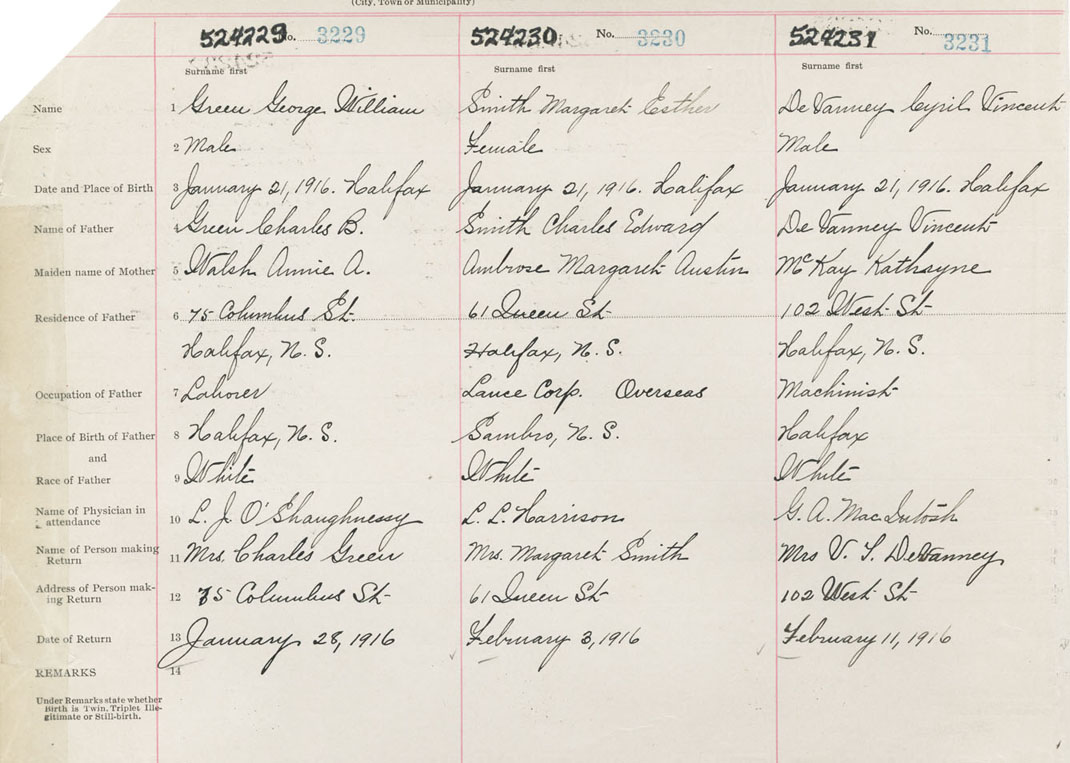 (City, Town or Municipality)
524229 No. 3229 524230 No. 3230 524231 No. 3231
Surname first Surname first Surname first
Name 1 Green George William Smith Margaret Esther De Vanney Cyril Vincent
Sex 2 Male Female Male
Date and Place of Birth 3 January 21, 1916. Halifax January 21, 1916. Halifax January 21, 1916. Halifax
Name of Father 4 Green Charles B. Smith Charles Edward De Vanney Vincent
Maiden name of Mother 5 Walsh Annie A. Ambrose Margaret Austin McKay Kathryne
Residence of Father 6 75 Columbus St. 61 Queen St 102 West St
Halifax, N. S. Halifax, N. S. Halifax, N. S.
Occupation of Father 7 Laborer Lance Corp. Overseas Machinist
Place of Birth of Father 8 Halifax, N. S. Sambro, N. S. Halifax
and
Race of Father 9 White White White
Name of Physician in
attendance 10 L. J. O'Shaughnessy L. L. Harrison G. A. MacIntosh
Name of Person making
Return 11 Mrs. Charles Green Mrs. Margaret Smith Mrs V. DeVanney
Address of Person mak-
ing Return 12 75 Columbus St 61 Queen St 102 West St
Date of Return 13 January 28, 1916 February 3, 1916 February 11, 1916
REMARKS 14
Under Remarks state whether
Birth is Twin, Triplet Ille-
gitimate or Still-birth.